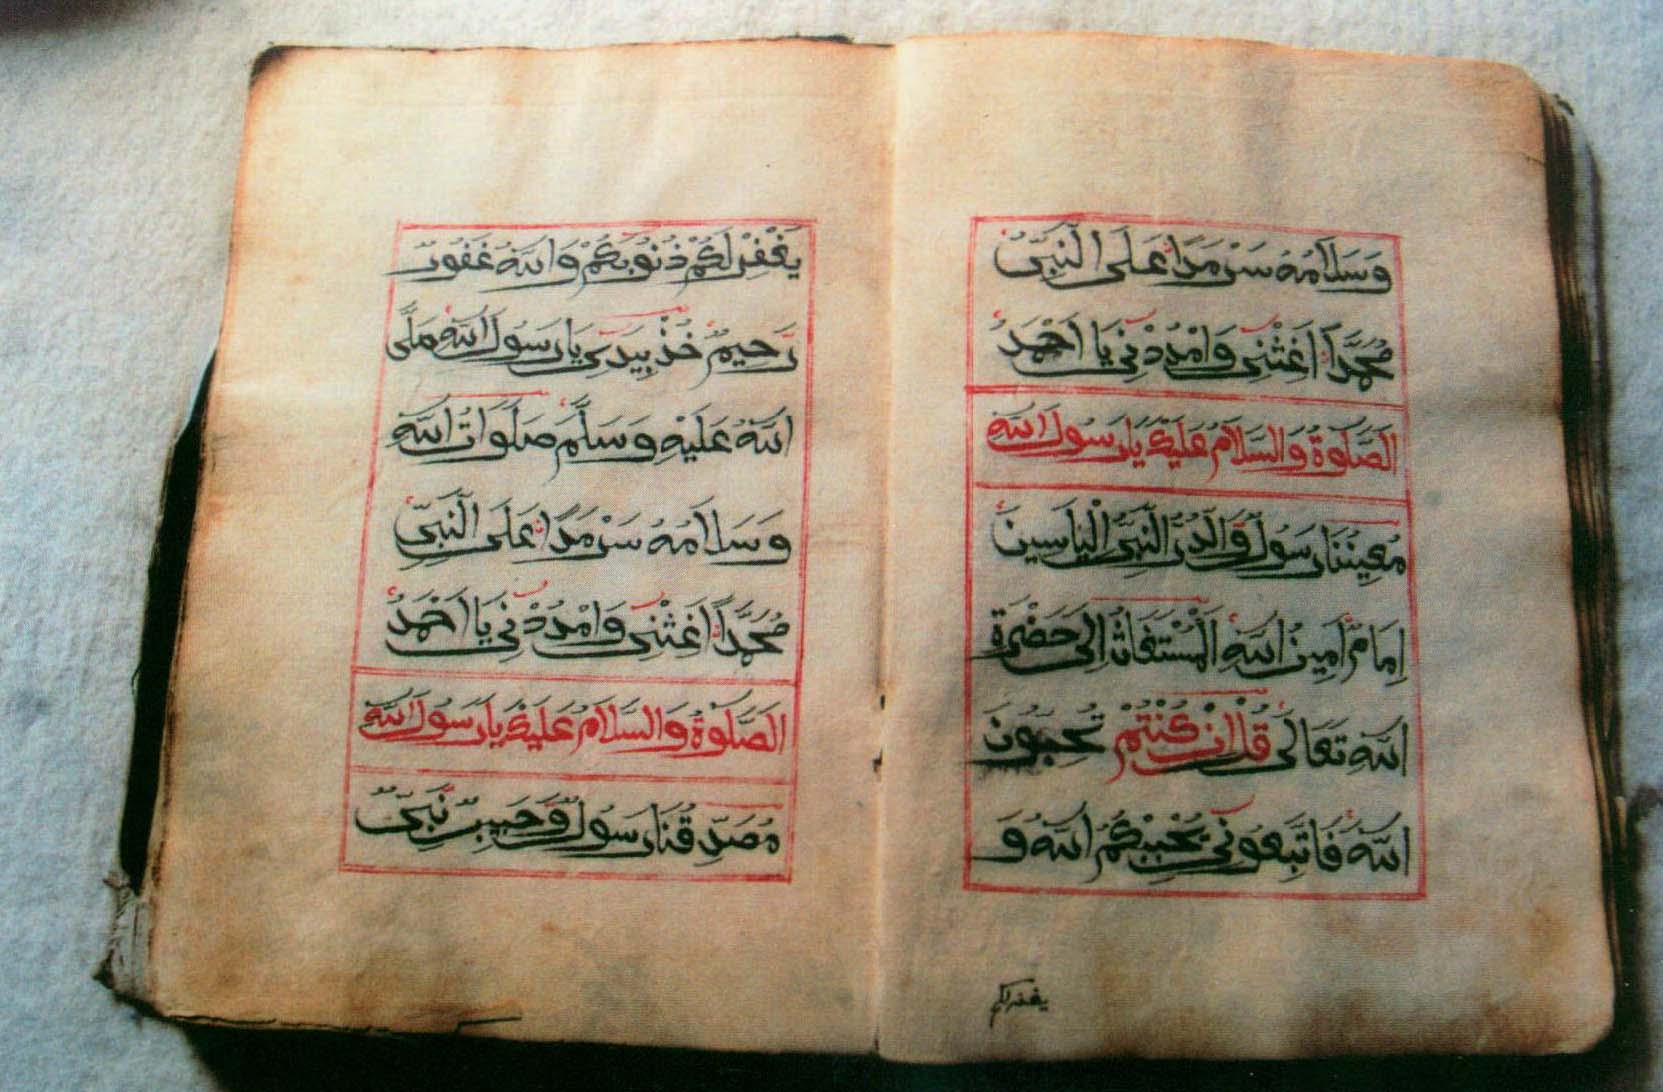 وَسَلَامُهُ سَرْمَدًا عَلَى النَّبِيِّ
مُحَمَّدًا اَغِثْنِى وَامْدُدْنِى يَا اَحْمَدُ
اَلصَّلٰوةُ وَالسَّلَامُ عَلَيْكَ يَارَسُولَ اللهِ
مُعِينُنَا رَسُولٌ وَالدُّرُّ النَّبِىُّ اِلْيَاسِينَ
اِمَامٌ اَمِينُ اللهِ اَلْمُسْتَغَاثُ اِلَى حَضْرَةِ
اللهِ تَعَالَى قُلْ اِنْ كُنْتُمْ تُحِبُّونَ
اللهَ فَاتَّبِعُونِى يُحْبِبْكُمُ اللهُ وَ
يغفرلكم
يَغْفِرْ لَكُمْ ذُنُوبَكُمْ وَاللهُ غَفُورٌ
رَحِيمٌ خُذْ بِيَدِى يَارَسُولَ اللهِ صَلَّى
اللهُ عَلَيْهِ وَسَلَّمَ صَلَوَاتُ اللهِ
وَسَلَامُهُ سَرْمَدًا عَلَى النَّبِيِّ
مُحَمَّدًا اَغِثْنِى وَامْدُدْنِى يَا اَحْمَدُ
اَلصَّلٰوةُ وَالسَّلَامُ عَلَيْكَ يَارَسُولَ اللهِ
مُصَدِّقُنَا رَسُولٌ وَحَبِيبٌ نَبِىٌّ